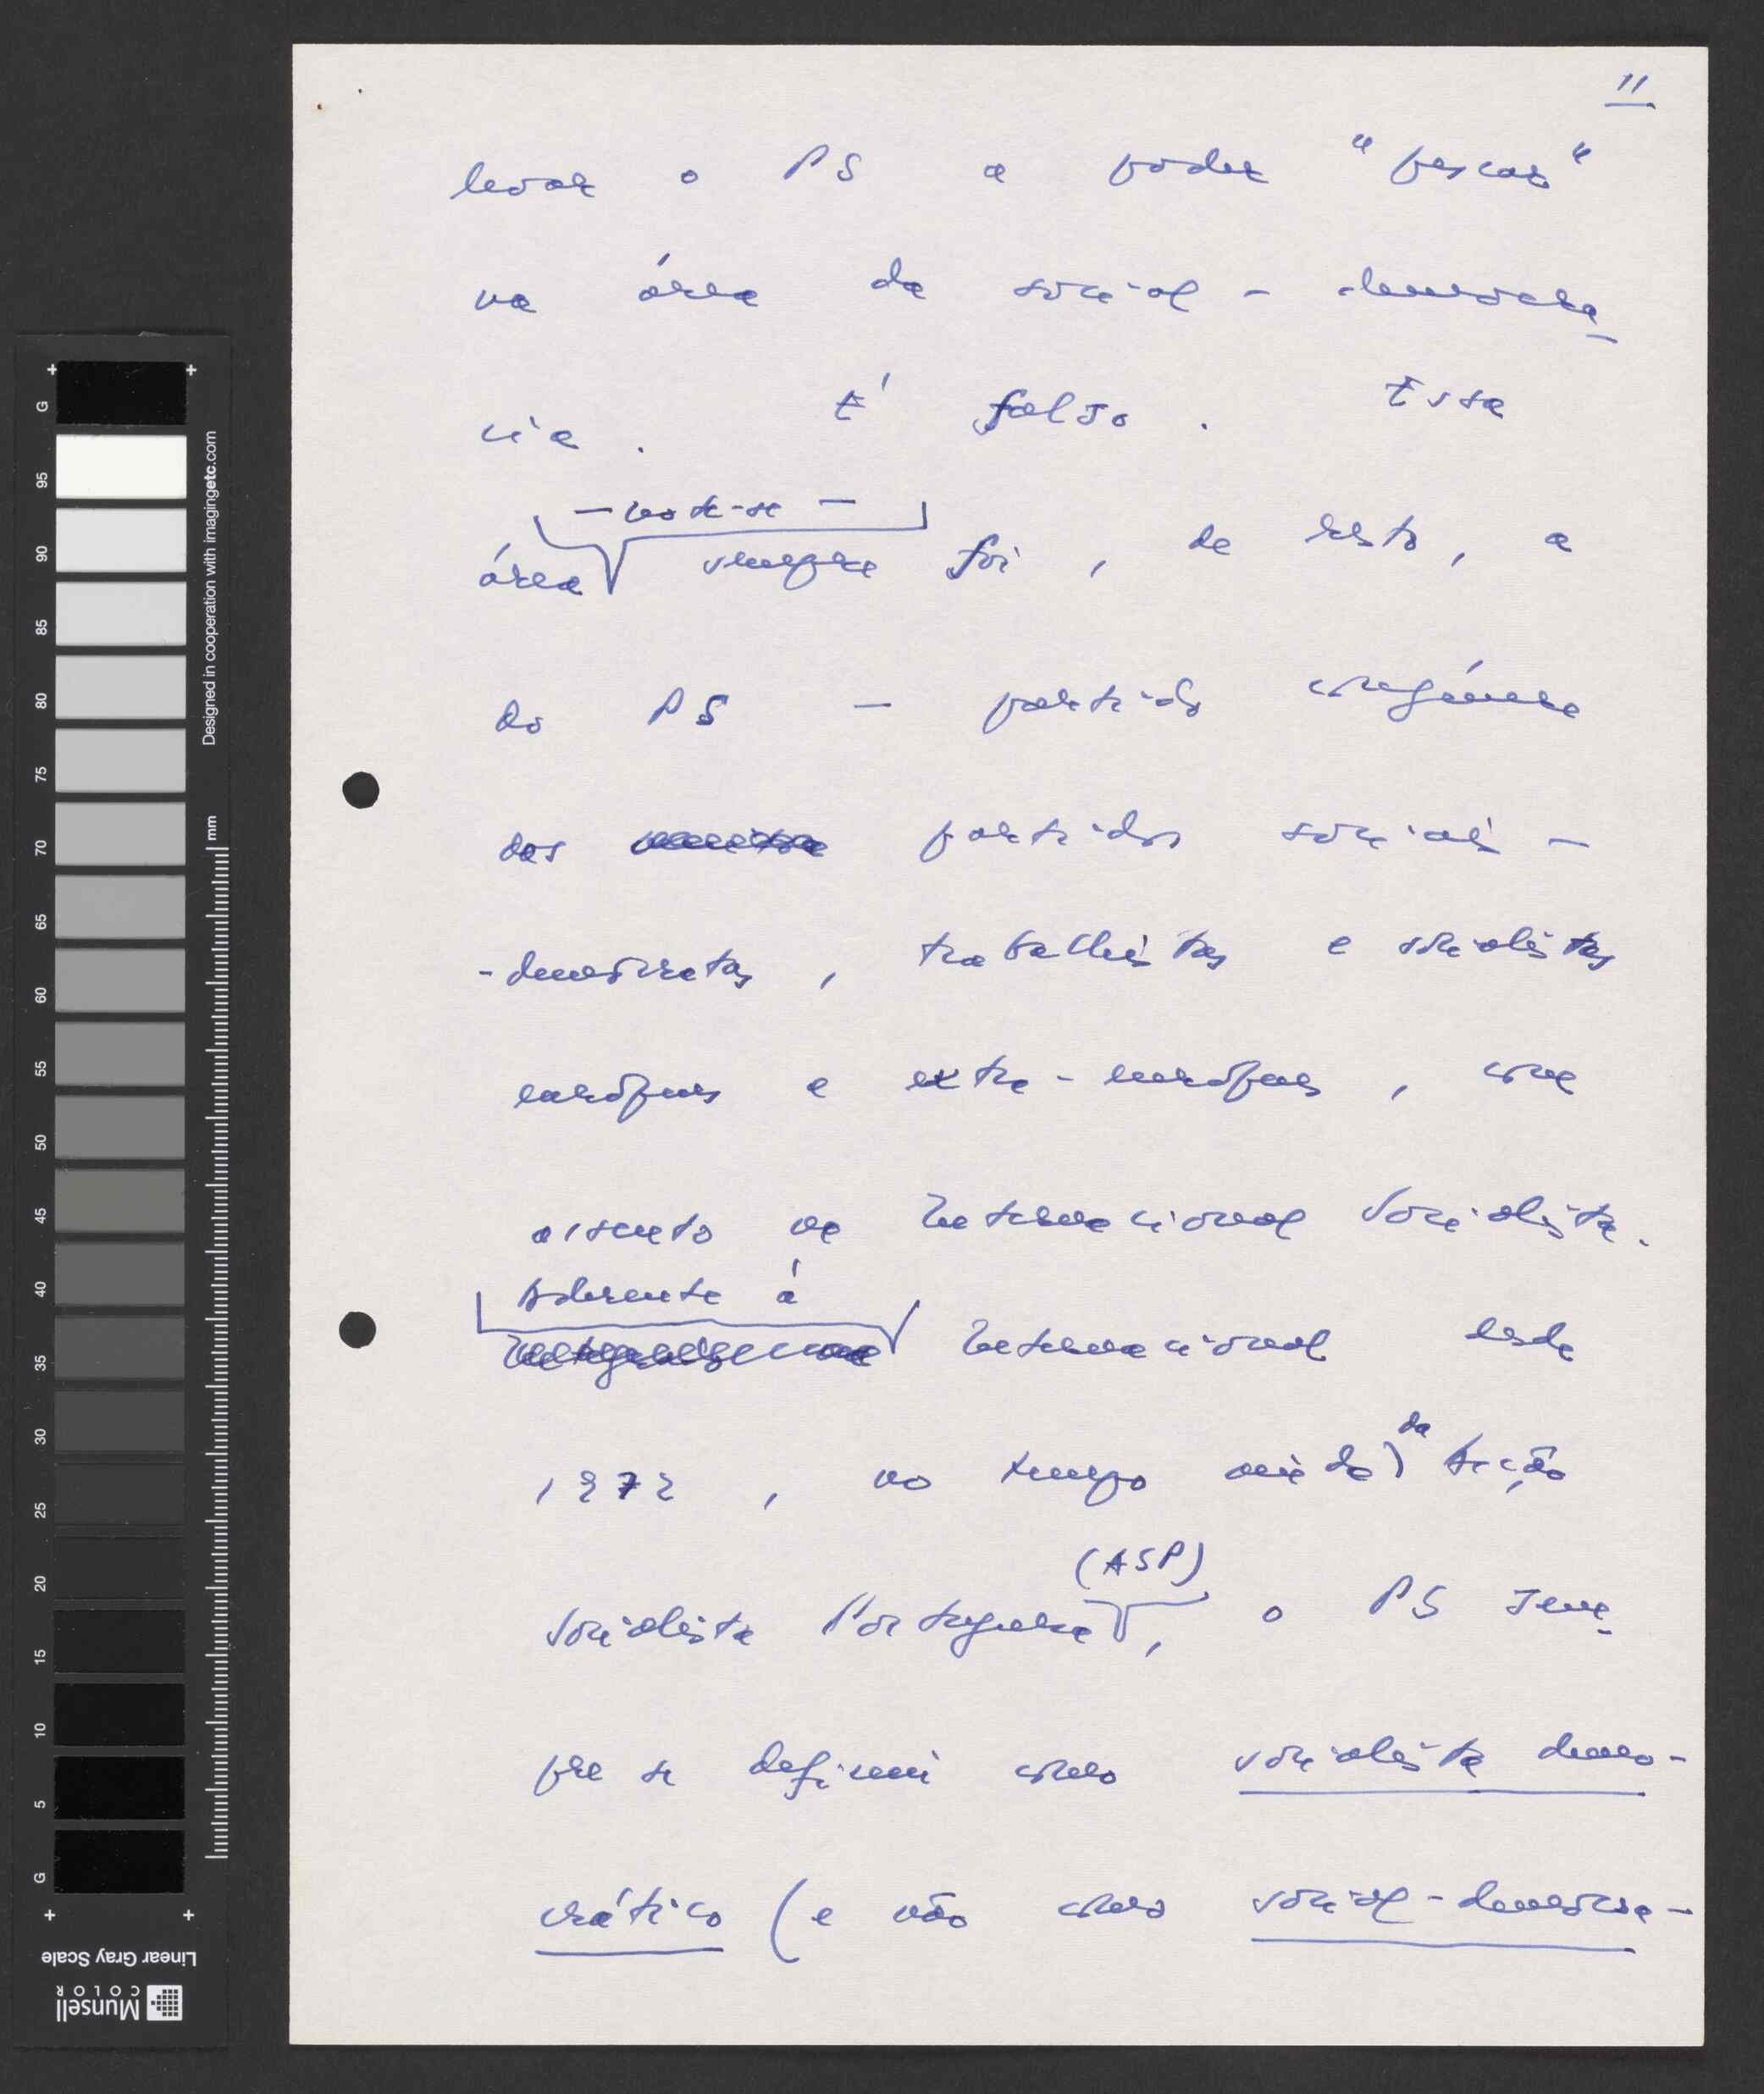 11
levar o PS a poder "pescar"
na área da social-democra-
cia. É falso. Essa
— note-se —
área sempre foi, de resto, a
do PS — partido congénere
dos partidos sociais-
-democratas, trabalhistas e socialistas
europeus e extra-europeus, com
assento na Internacional Socialista.
Aderente à
Internacional desde
1972, no tempo ainda da Acção
(ASP)
Socialista Portuguesa, o PS sem-
pre se definiu como socialista demo-
crático (e não como social-democra-
G
95
90
85
80
75
70
65
60
55
50
45
40
35
30
25
20
15
10
5
G
mm
Designed in cooperation with imagingetc.com
Linear Gray Scale
Munsell
COLOR